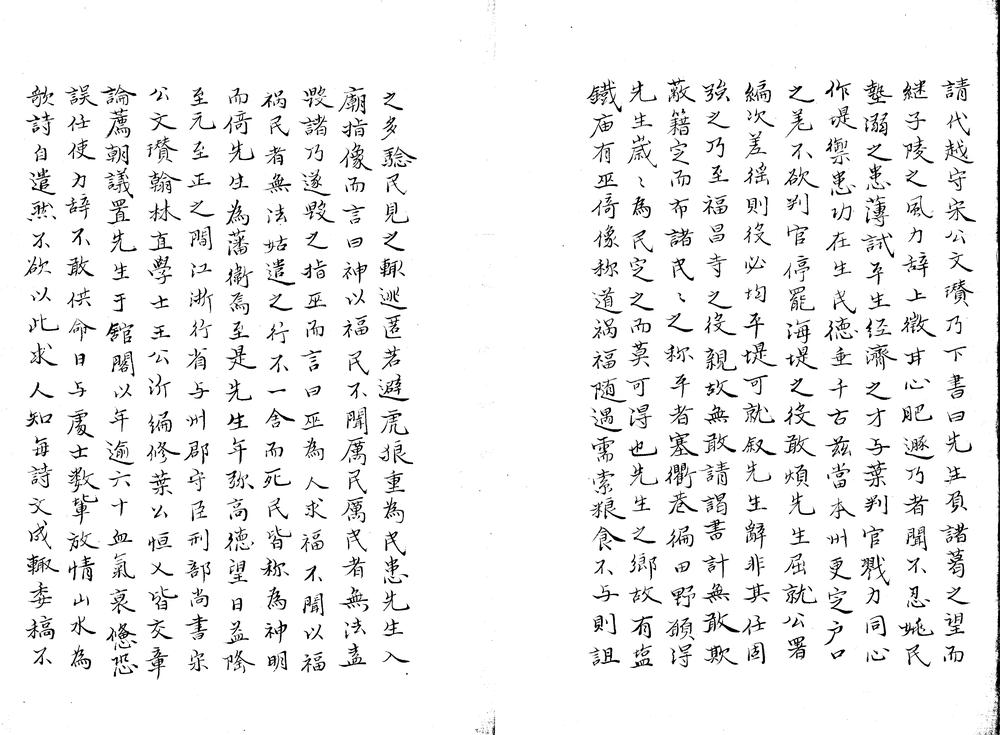 請代越守宋公文瓚乃下書曰先生負諸葛之望而
継子陵之風力辞上徵甘心肥遯乃者聞不忍姚民
墊溺之患薄試平生经濟之才与葉判官戮力同心
作堤禦患功在生民德垂千古兹當本州更定户口
之差不欲判官停罷海堤之役敢煩先生屈就公署
編次差徭則役必均平堤可就叙先生辭非其任固
強之乃至福昌寺之役親故無敢請謁書計無敢欺
蔽籍定而布諸民〻之称平者塞衢巷徧田野頟得
先生歳〻為民定之而莫可得也先生之鄉故有塩
鐵庙有巫倚像称道禍福随遇需索粮食不与則詛
之多騐民見之輒逃匿若避虎狼重為民患先生入
廟指像而言曰神以福民不聞厲民厲民者無法盍
毀諸乃遂毀之指巫而言曰巫為人求福不聞以福
祸民者無法姑遣之行不一舎而死民皆称為神明
而倚先生為藩衞焉至是先生年弥高德望日益隆
至元至正之間江浙行省与州郡守臣刑部尚書宋
公文瓚翰林直學士王公沂編修葉公恒乂皆交章
論薦朝議置先生于舘閣以年逾六十血氣衰憊恐
誤任使力辞不敢供命日与處士数軰放情山水為
歌詩自遣㷊不欲以此求人知每詩文成輒委稿不